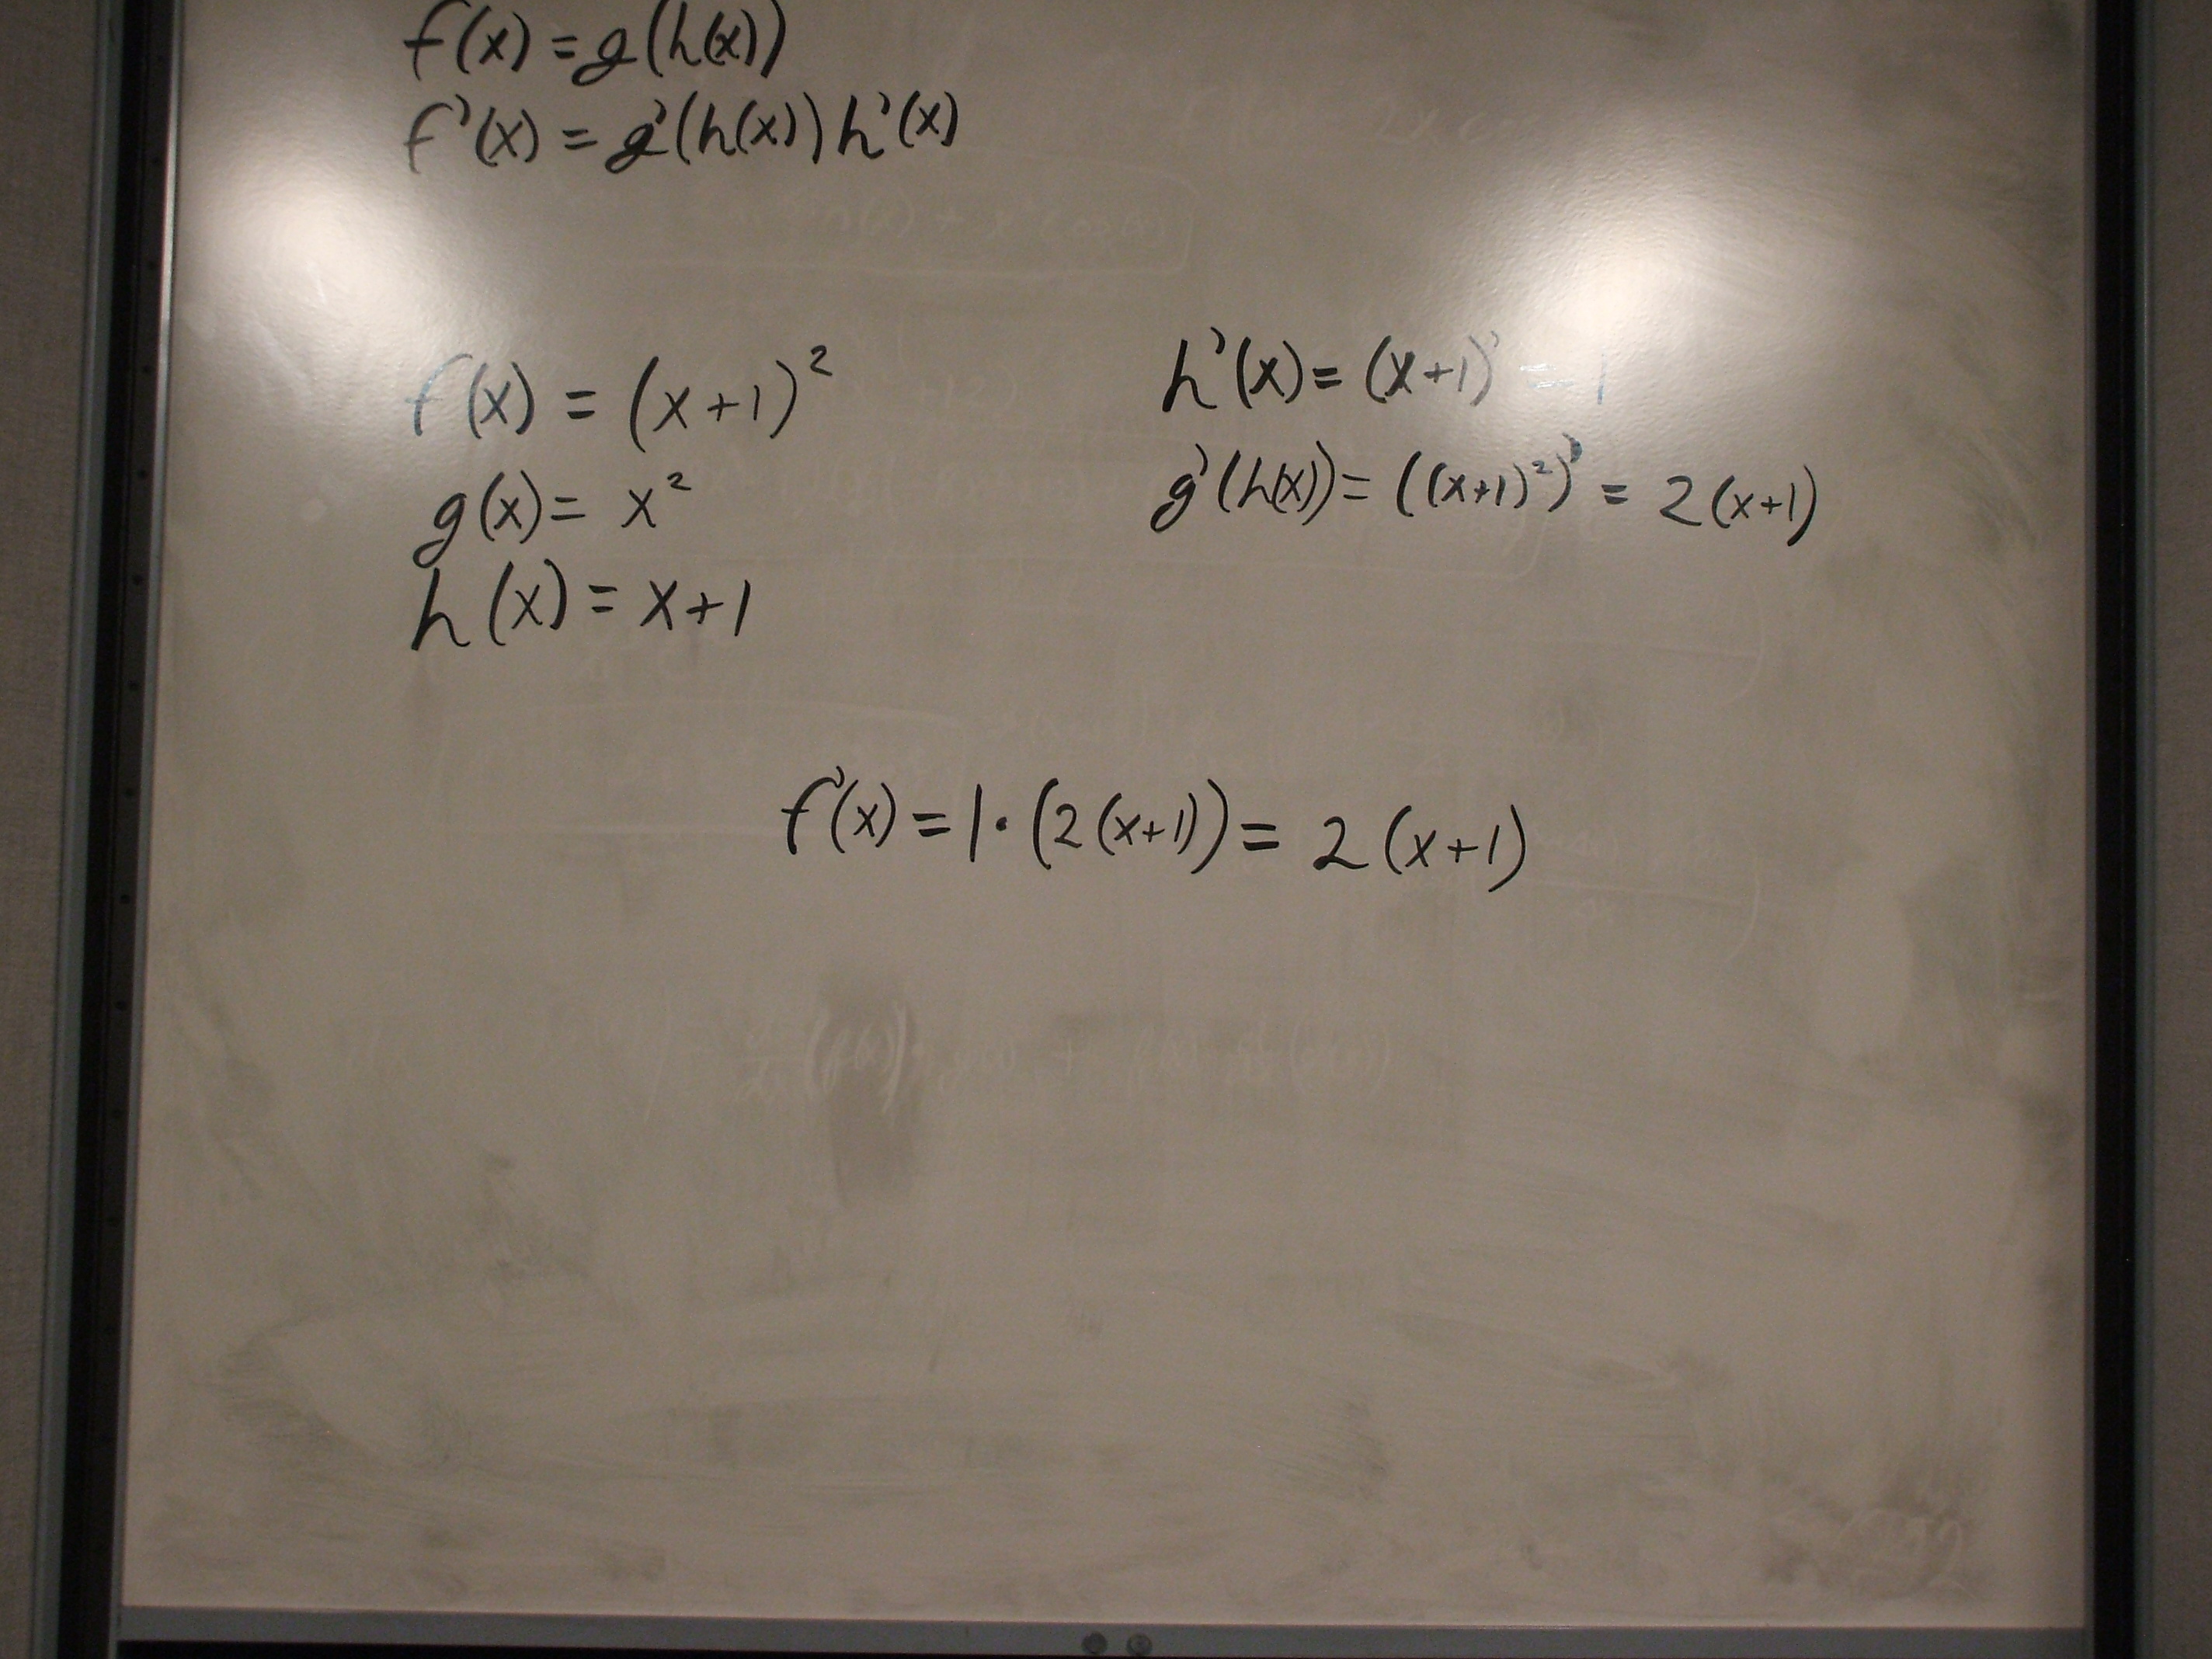 f(x) = g(h(x))
f'(x) = g'(h(x)) h'(x)
f(x) = (x+1)²
g(x) = x²
h(x) = x+1
h'(x) = (x+1)' = 1
g'(h(x)) = ((x+1)²)' = 2(x+1)
f'(x) = 1·(2(x+1)) = 2(x+1)